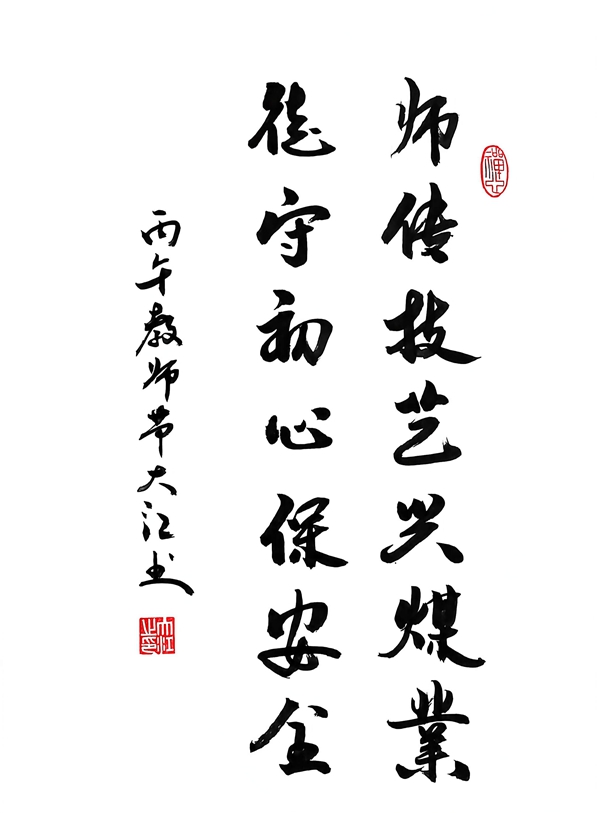 师传技艺兴煤业
德守初心保安全
丙午教师节大江书